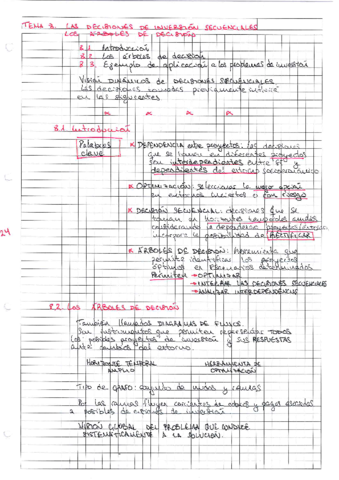 TEMA 8. LAS DECISIONES DE INVERSIÓN SECUENCIALES
LOS ARBOLES DE DECISIÓN
8.1 Introducción
8.2 Los árboles de decisión
8.3 Ejemplo de aplicación a los problemas de inversión
Visión DINÁMICA de DECISIONES SECUENCIALES
Las decisiones tomadas previamente influye
en las siguientes
8.1 Introducción
Palabras
clave
* DEPENDENCIA entre proyectos: las decisiones
que se toman en diferentes proyectos
son interdependientes entre sí y
dependientes del entorno socioeconómico
* OPTIMIZACIÓN: seleccionar la mejor opción
en entornos inciertos o con riesgo
* DECISIÓN SECUENCIAL: decisiones que se
toman en horizontes temporales amplios
considerando la dependencia proyectos/entorno
incorpora la posibilidad de RECTIFICAR
* ÁRBOLES DE DECISIÓN: herramienta que
permite identificar los proyectos
óptimos en escenarios determinados
Permiten → OPTIMIZAR
→ INTEGRAR LAS DECISIONES SECUENCIALES
→ ANALIZAR INTERDEPENDENCIAS
8.2. LOS ÁRBOLES DE DECISIÓN
También llamados DIAGRAMAS DE FLUJOS
Son instrumentos que permiten representar TODOS
los posibles proyectos de inversión y SUS RESPUESTAS
ante cambios del entorno.
HORIZONTE TEMPORAL
AMPLIO
HERRAMIENTA DE
OPTIMIZACIÓN
Tipo de GRAFO: conjunto de nudos y ramas
Por las ramas fluyen corrientes de cobros y pagos asociados
a posibles decisiones de inversión
VISIÓN GLOBAL DEL PROBLEMA QUE CONDUCE
SISTEMÁTICAMENTE A LA SOLUCIÓN.